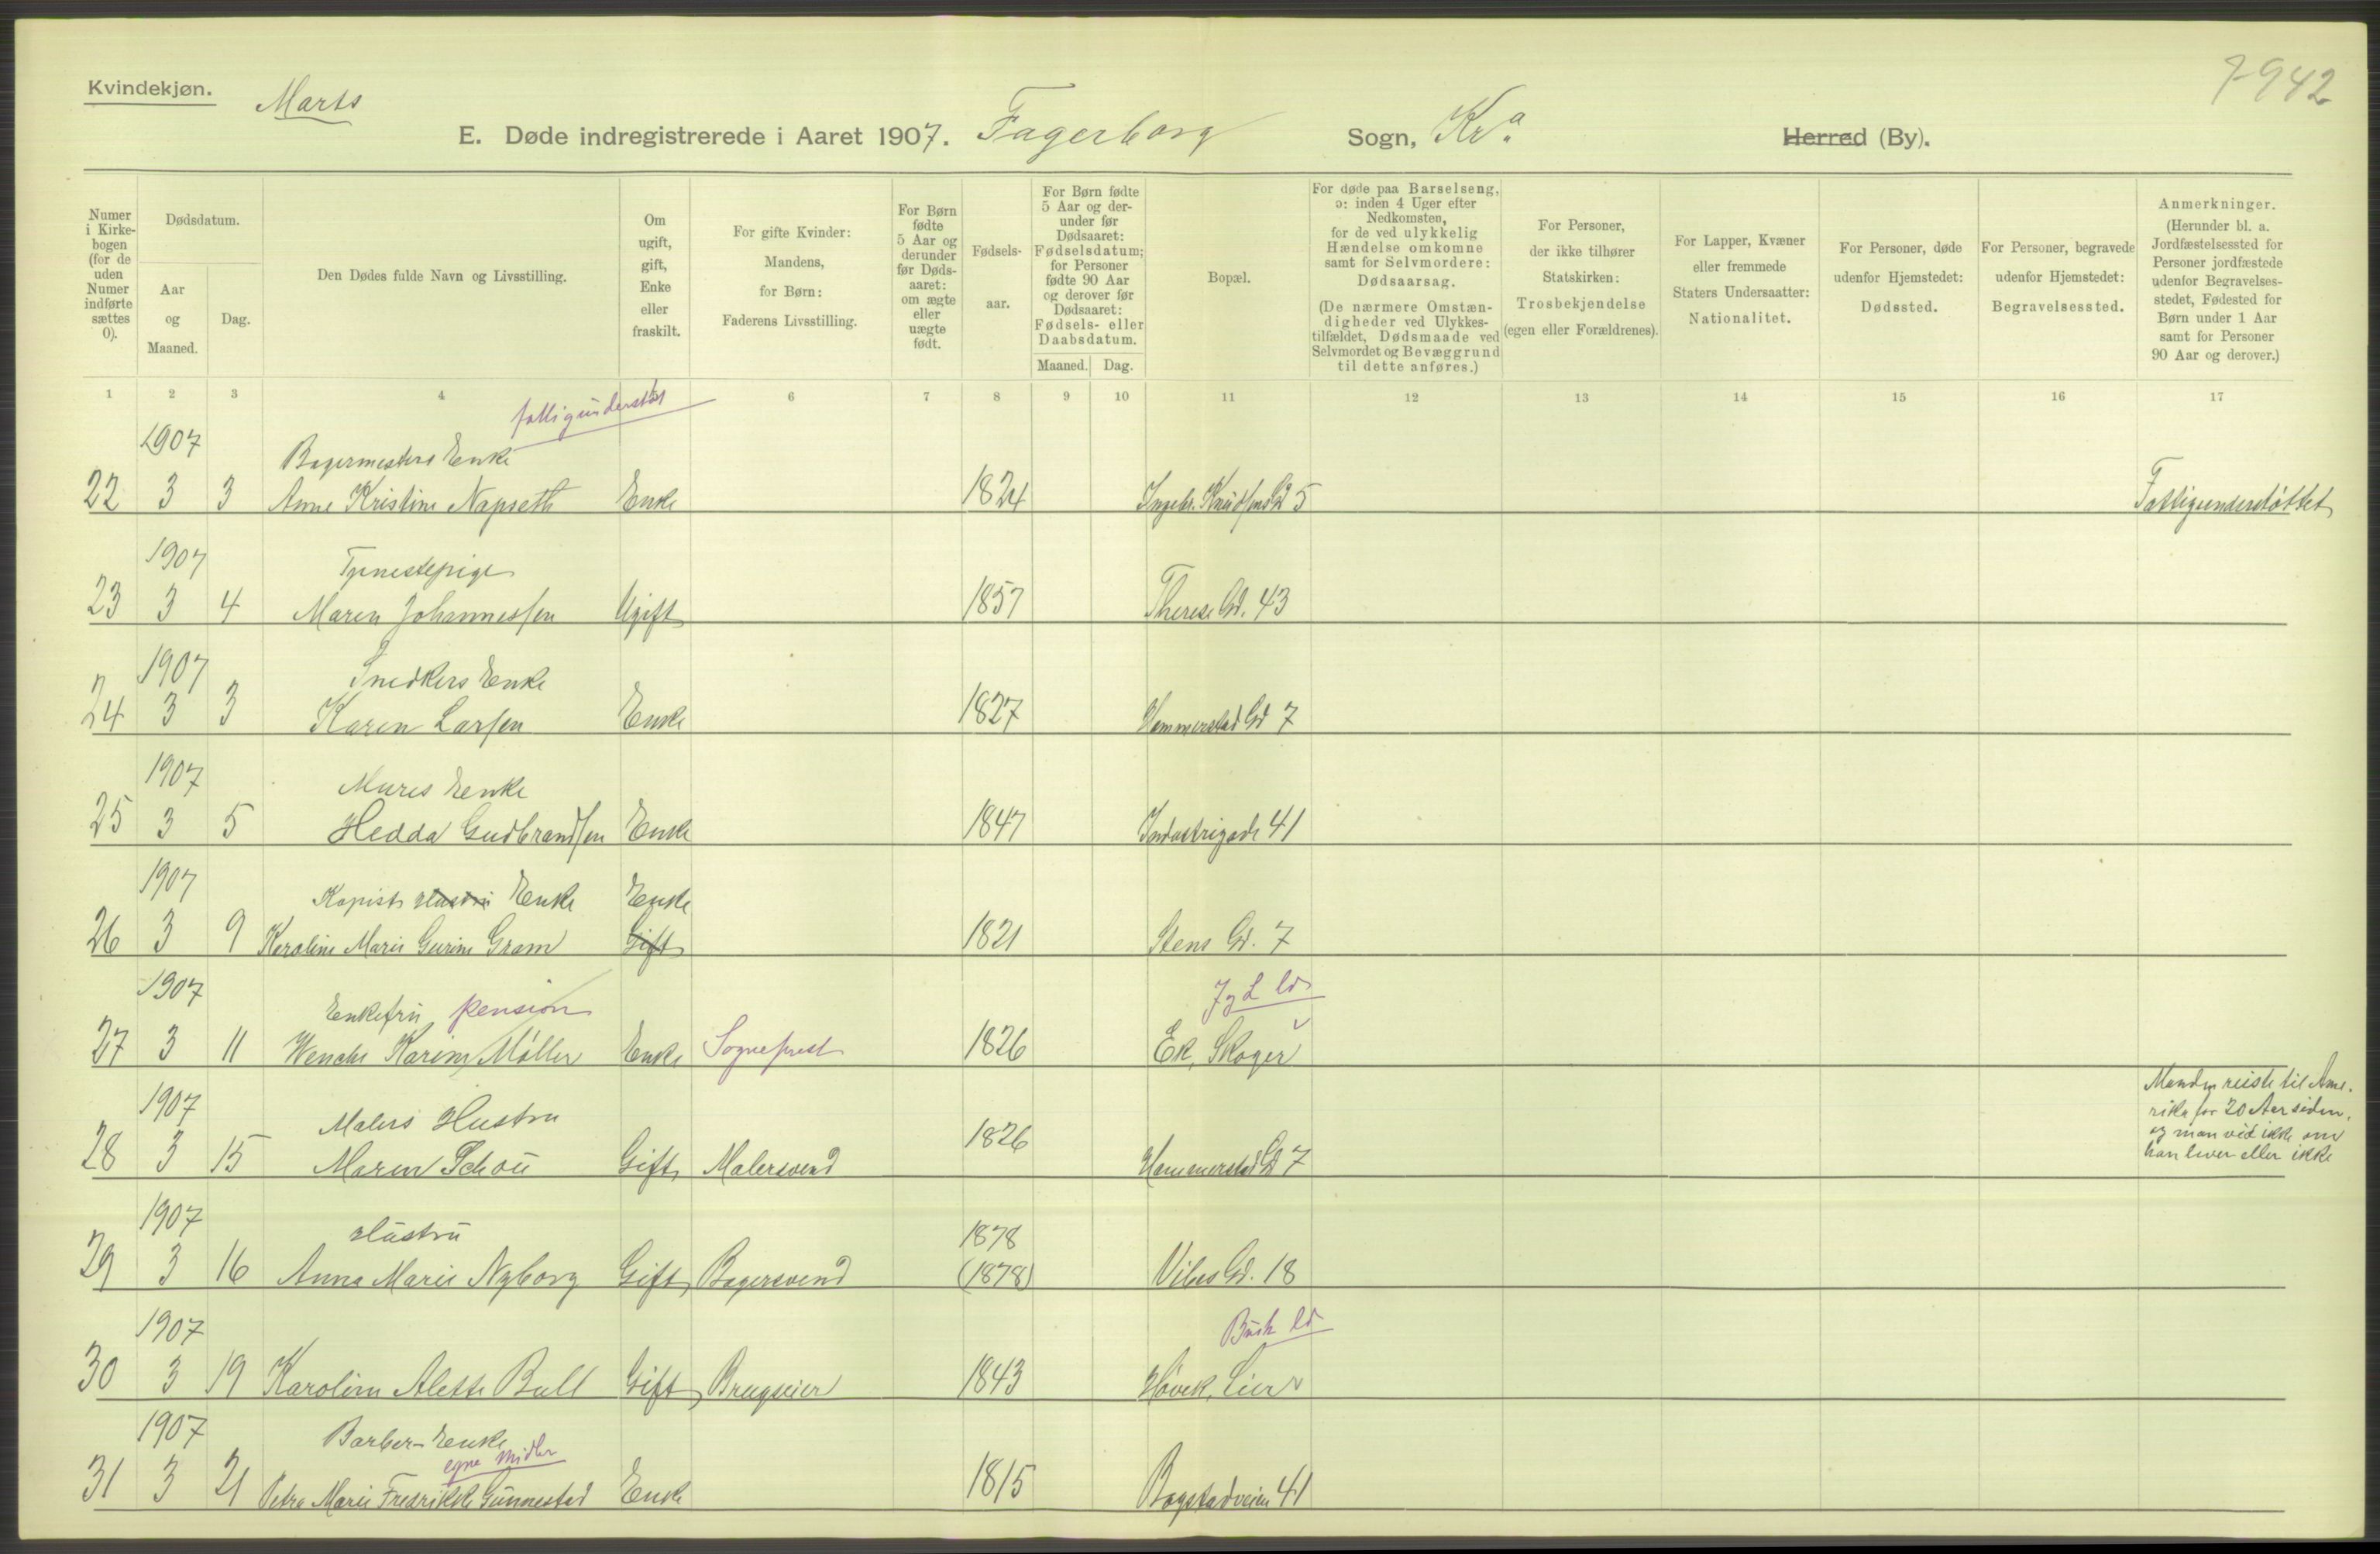 Kvindekjøn.
Marts
7942
E. Døde indregistrerede i Aaret 1907. Fagerborg Sogn, Kra. Herred (By).
Numer i Kirkebogen (for de uden Numer indførte sættes 0).
Dødsdatum.
Aar og Maaned.
Dag.
Den Dødes fulde Navn og Livsstilling.
Om ugift, gift, Enke eller fraskilt.
For gifte Kvinder: Mandens, for Børn: Faderens Livsstilling.
For Børn fødte 5 Aar og derunder før Dødsaaret: om ægte eller uægte født.
Fødselsaar.
For Børn fødte 5 Aar og derunder før Dødsaaret: Fødselsdatum; for Personer fødte 90 Aar og derover før Dødsaaret: Fødsels- eller Daabsdatum.
Maaned. Dag.
Bopæl.
For døde paa Barselseng, ɔ: inden 4 Uger efter Nedkomsten, for de ved ulykkelig Hændelse omkomne samt for Selvmordere: Dødsaarsag. (De nærmere Omstændigheder ved Ulykkestilfældet, Dødsmaade ved Selvmordet og Bevæggrund til dette anføres.)
For Personer, der ikke tilhører Statskirken: Trosbekjendelse (egen eller Forældrenes).
For Lapper, Kvæner eller fremmede Staters Undersaatter: Nationalitet.
For Personer, døde udenfor Hjemstedet: Dødssted.
For Personer, begravede udenfor Hjemstedet: Begravelsessted.
Anmerkninger. (Herunder bl. a. Jordfæstelsessted for Personer jordfæstede udenfor Begravelsesstedet, Fødested for Børn under 1 Aar samt for Personer 90 Aar og derover.)
1 2 3 4 6 7 8 9 10 11 12 13 14 15 16 17
fattigunderstøt
1907 Bagermesters Enke
22 3 3 Anne Kristine Napseth Enke 1824 Ingebr. Knudsens Gd 5 Fattigunderstøttet
1907 Tjenestepige
23 3 4 Maren Johannessen Ugift 1857 Therese Gd. 43
1907 Snedkers Enke
24 3 3 Karen Larsen Enke 1827 Hammerstad Gd 7
1907 Murers Enke
25 3 5 Hedda Gudbrandsen Enke 1847 Industrigade 41
1907 Kopists Hustru Enke Enke
26 3 9 Karoline Marie Gurine Gram Gift 1821 Stens Gd. 7
1907 Enkefru pension
27 3 11 Wenche Karine Møller Enke Sogneprest 1826 Ek, Skoger
1907 Malers Hustru
28 3 15 Maren Schou Gift Malersvend 1826 Hammerstad Gd 7
Manden reiste til Ame-
rika for 20 Aar siden,
og man ved ikke om
han lever eller ikke
1907 Hustru 1878
29 3 16 Anna Marie Nyborg Gift Bagersvend (1878) Vibes Gd. 18
1907
30 3 19 Karoline Alette Bull Gift Brugseier 1843 Høvik, Lier
1907 Barber-Enke
egne midler
31 3 21 Petra Marie Fredrikke Gunnestad Enke 1815 Bogstadveien 41